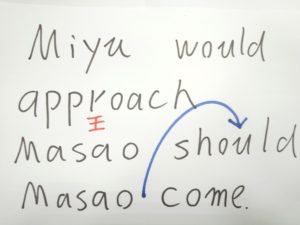 Miyu would
approach
王
Masao should
Masao come.